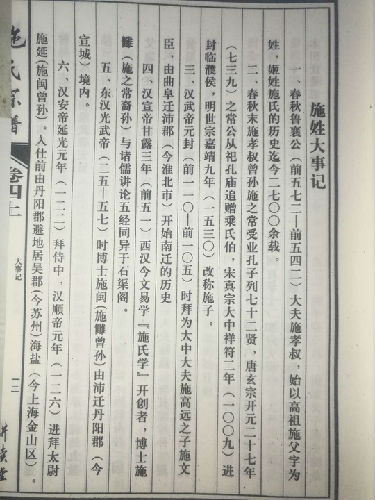 施姓大事记
一、春秋鲁襄公（前五七二—前五四二）大夫施孝叔，始以高祖施父字为
姓，姬姓施氏的历史迄今二七〇〇余载。
二、春秋末施孝叔曾孙施之常受业孔子列七十二贤，唐玄宗开元二十七年
（七三九）之常公从祀孔庙追赠乘氏伯，宋真宗大中祥符二年（一〇〇九）进
封临濮侯，明世宗嘉靖九年（一五三〇）改称施子。
三、汉武帝元封（前一一〇—前一〇五）时拜为大中大夫施高远之子施文
臣，由曲阜迁沛郡（今淮北市）开始南迁的历史
四、汉宣帝甘露三年（前五一）西汉今文易学『施氏学』开创者，博士施
雠（施之常裔孙）与诸儒讲论五经同异于石渠阁。
五、东汉光武帝（二五—五七）时博士施闽（施雠曾孙）由沛迁丹阳郡（今
宣城）境内。
六、汉安帝延光元年（一二二）拜侍中，汉顺帝元年（一二六）进拜太尉
施延（施闽曾孙）。入仕前丹阳郡避地居吴郡（今苏州）海盐（今上海金山区）。
施氏宗谱
卷四上
大事记
一三